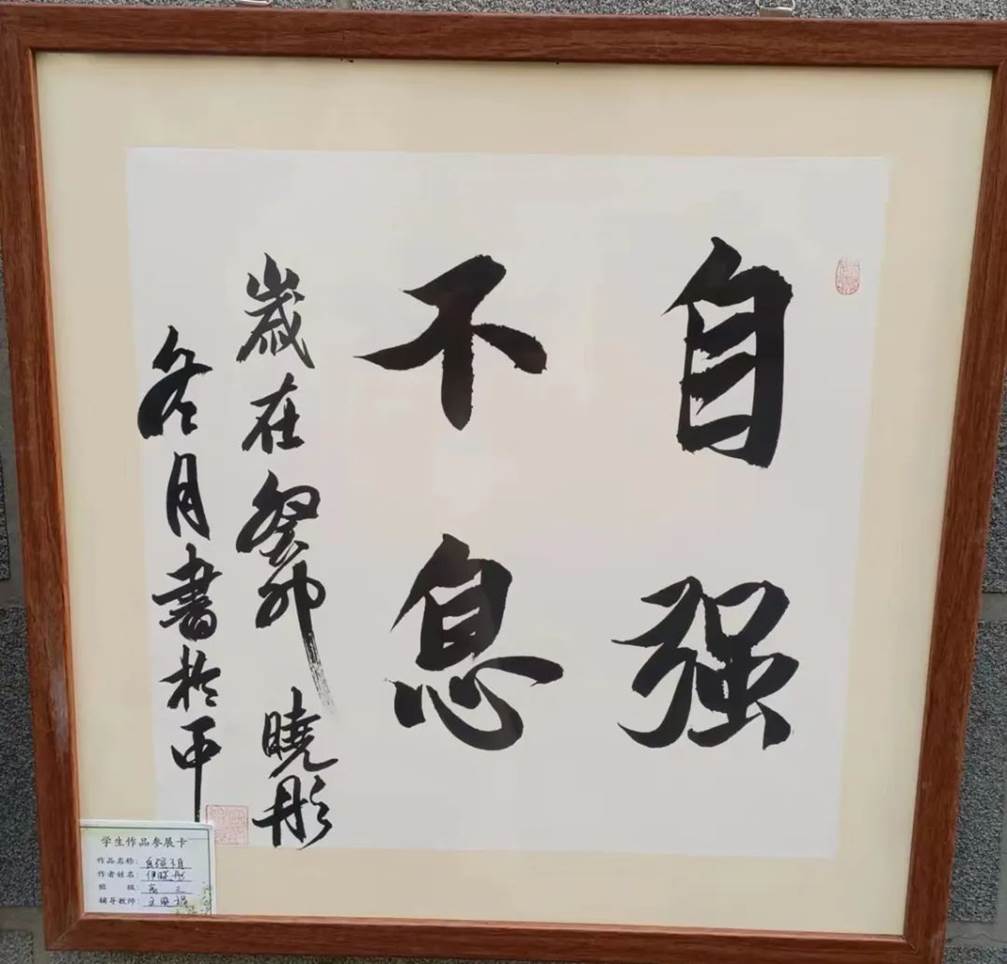 自强
不息
歲在癸卯 曉彤
冬月書於平
学生作品参展卡
作品名称：自强不息
作者姓名：伊晓彤
班 级：高三
辅导教师：